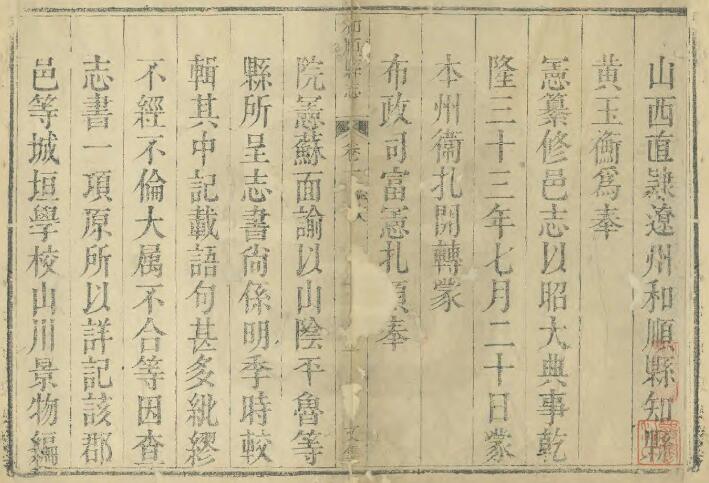 山西直隸遼州和順縣知縣
黃玉衡為奉
憲纂修邑志以昭大典事乾
隆三十三年七月二十日蒙
本州衛扎開轉蒙
布政司富憲扎頭奉
和順縣志 卷
院憲蘇面諭以山陰平魯等
縣所呈志書尚係明季時較
輯其中記載語句甚多紕繆
不經不倫大属不合等因查
志書一項原所以詳記該郡
邑等城垣學校山川景物編